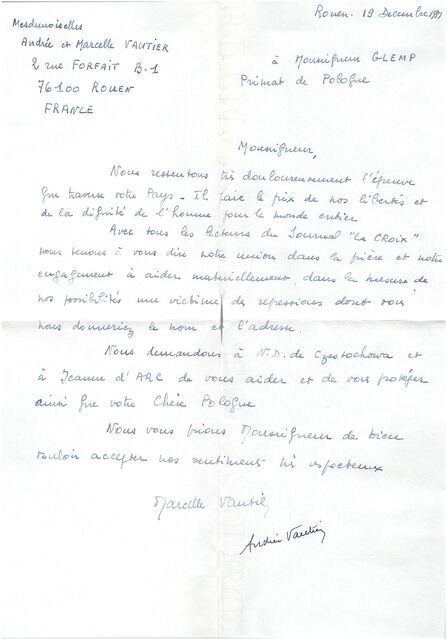 Rouen. 19 Decembre 1981
Mesdemoiselles
Andrée et Marcelle VAUTIER
2 rue FORFAIT B.1
76100 ROUEN
FRANCE
à Monsigneur GLEMP
Primat de Pologne
Monsigneur,
Nous ressentons très douloureusement l'épreuve
que traverse votre Pays - Il paie le prix de nos libertés et
de la dignité de l'homme pour le monde entier
Avec tous les lecteurs du Journal "La CROIX"
nous tenons à vous dire notre union dans la prière et notre
engagement à aider matériellement, dans la mesure de
nos possibilités une victime des repressions dont vous
nous donneriez le nom et l'adresse.
Nous demandons à N.D. de Czestochowa et
à Jeanne d'ARC de vous aider et de vous protéger
ainsi que votre Chère Pologne
Nous vous prions Monsigneur de bien
vouloir accepter nos sentiments très respectueux
Marcelle Vautier
Andrée Vautier